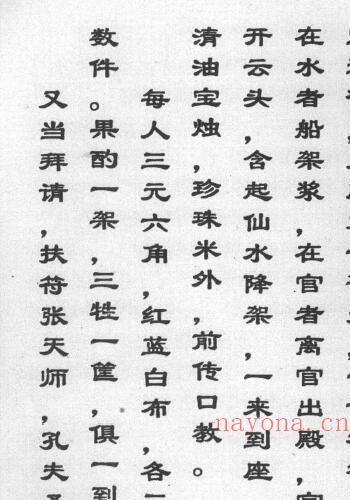 在水者船架浆，在官者离官出殿，
开云头，含起仙水降架，一来到座
清油宝烛，珍珠米外，前传口教。
每人三元六角，红蓝白布，各
数件。果酌一架，三牲一筐，俱一到
又当拜请，扶符张天师，孔夫
nayona.cn